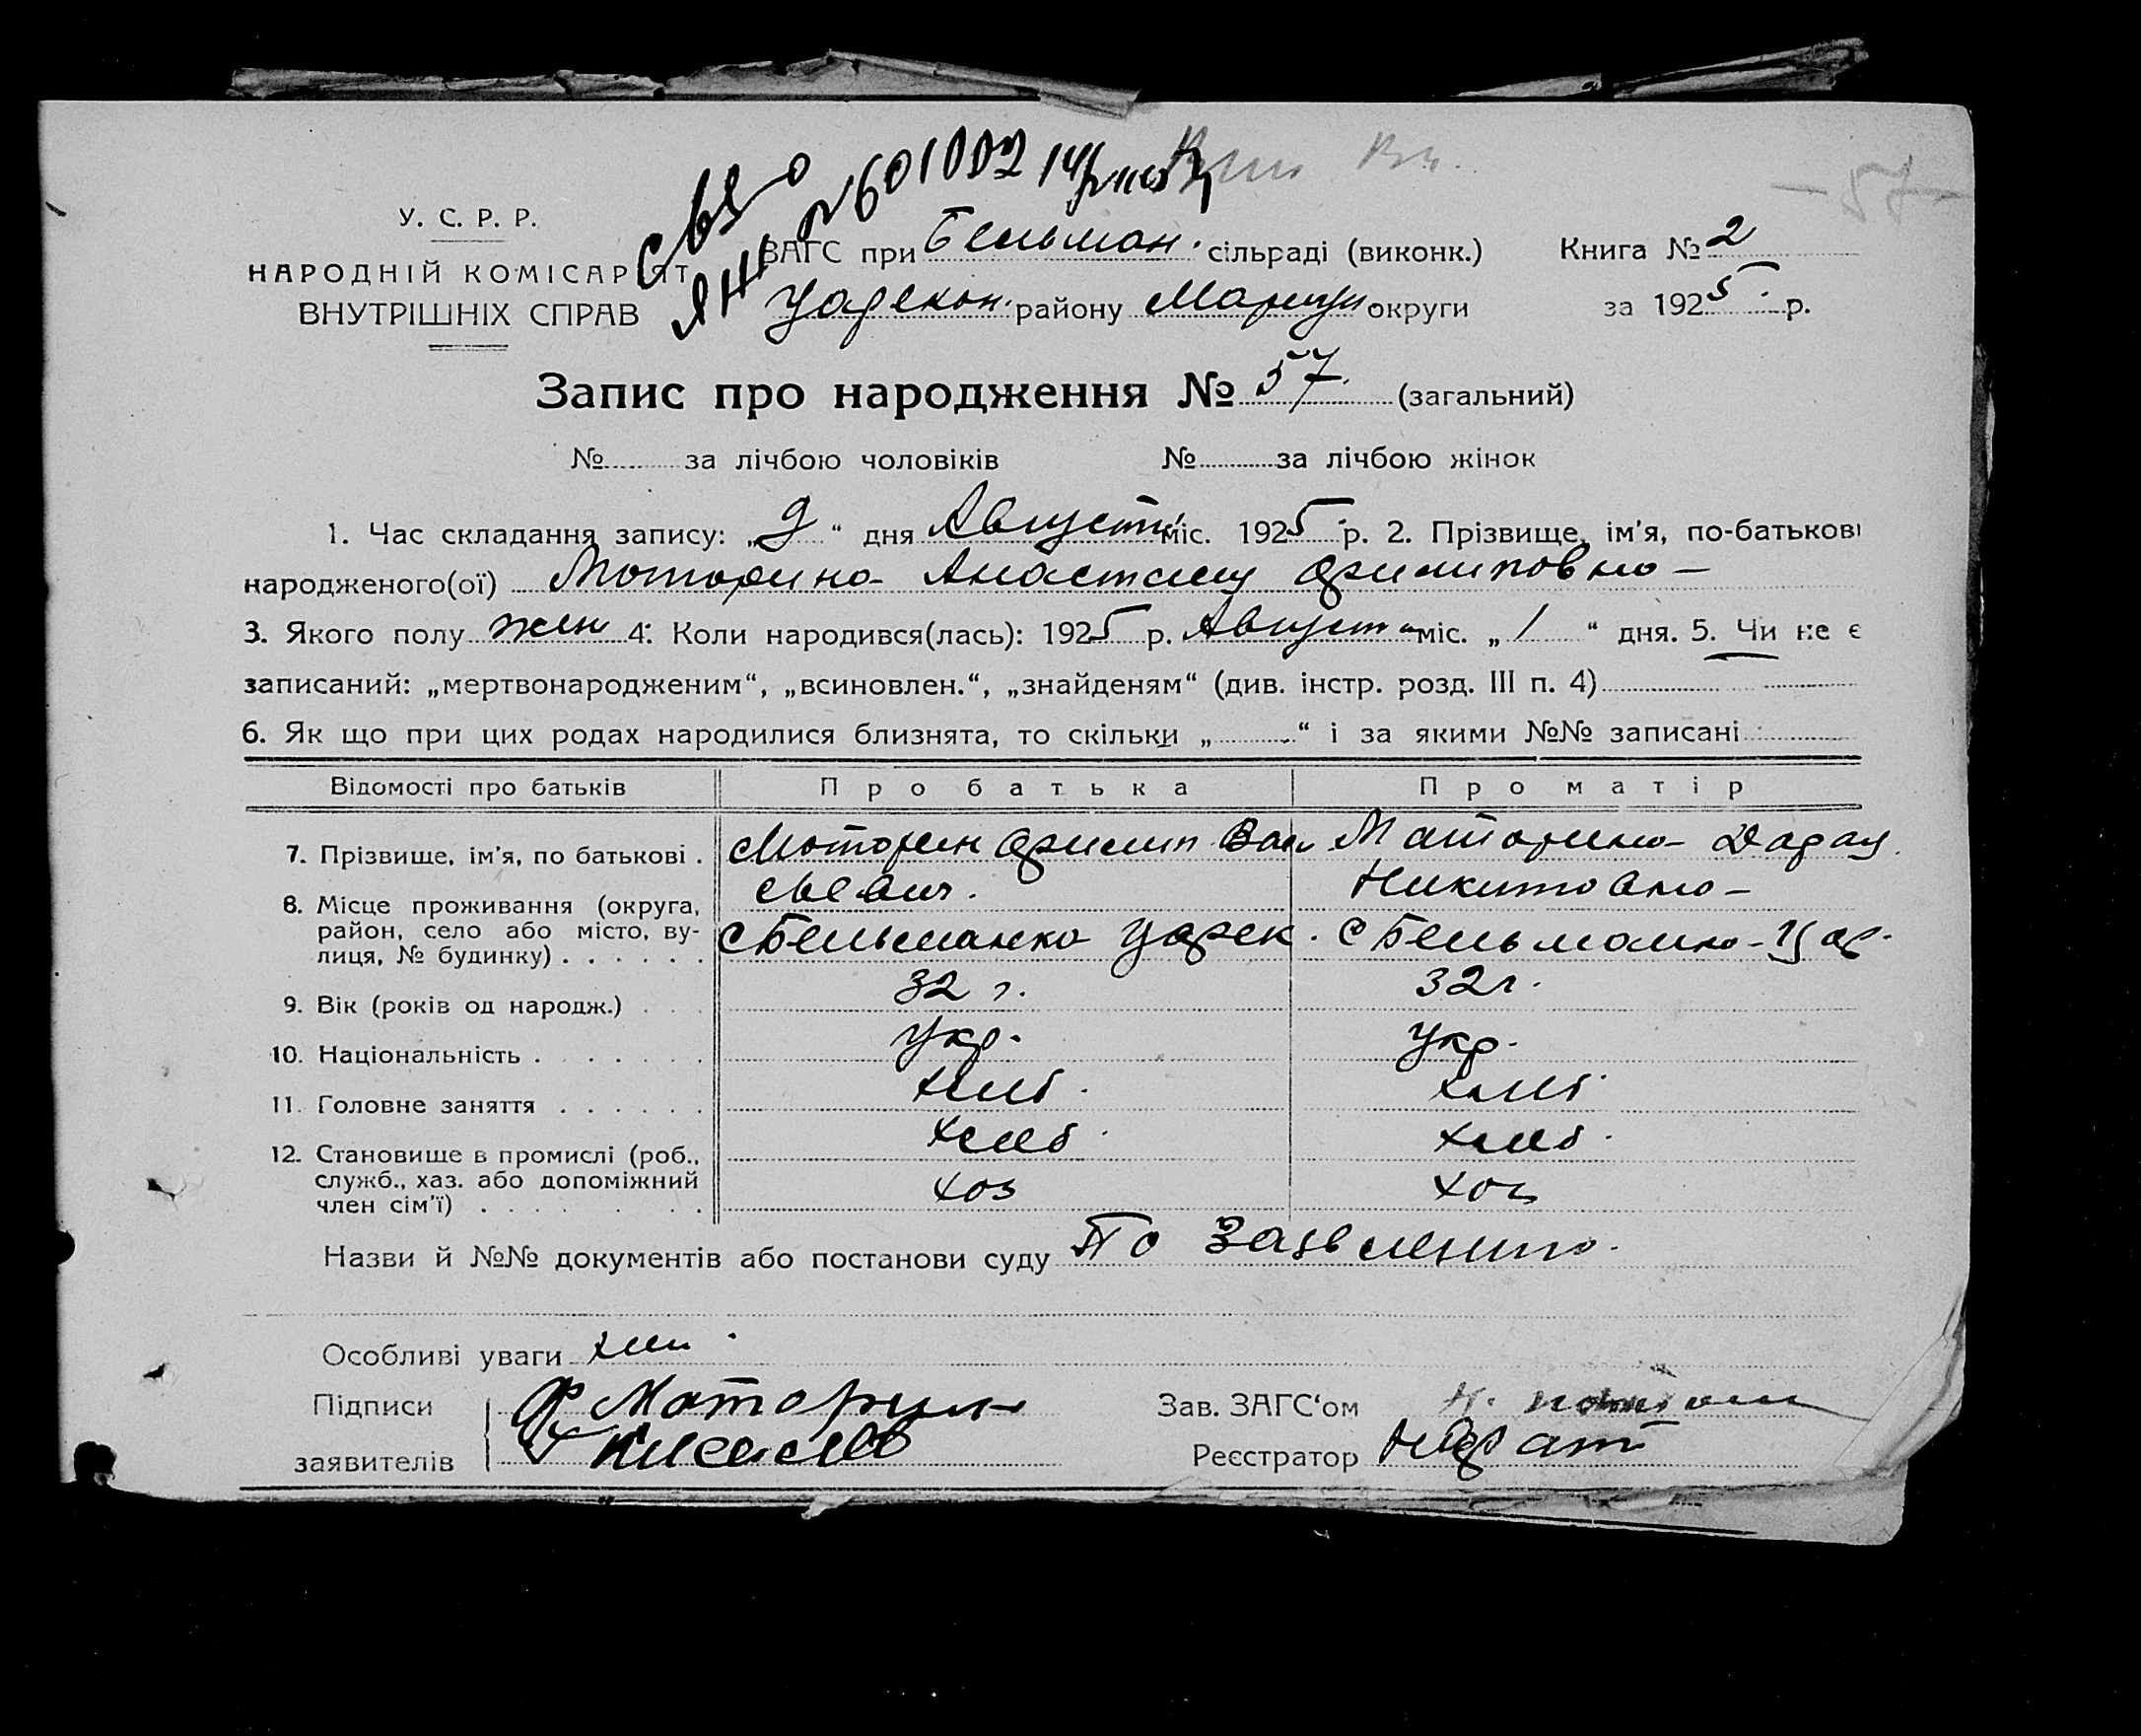 СВ-о
ЯЖ №601002
- 57 -
У. С. Р. Р.
НАРОДНІЙ КОМІСАРІАТ
ВНУТРІШНІХ СПРАВ
ЗАГС при Бельман. сільраді (виконк.) Книга № 2
Царекон. району Мариуп. округи за 1925 р.
Запис про народження № 57. (загальний)
№ за лічбою чоловіків № за лічбою жінок
1. Час складання запису: „9“ дня Августа міс. 1925 р. 2. Прізвище, ім'я, по-батькові
народженого(ої) Моторина Анастасия Филиповна
3. Якого полу жен 4. Коли народився(лась): 1925 р. Августа міс. „1“ дня. 5. Чи не є
записаний: „мертвонародженим“, „всиновлен.“, „знайденям“ (див. інстр. розд. III п. 4)
6. Як що при цих родах народилися близнята, то скільки „ “ і за якими №№ записані
Відомості про батьків Про батька Про матір
7. Прізвище, ім'я, по батькові . Моторин Филип Васи Маторина Дарья
льевич. Никитовна
8. Місце проживання (округа,
район, село або місто, ву-
лиця, № будинку) . . . . . . с Бельманка Царек. с Бельманка Цар.
9. Вік (років од народж.) . . . 32 г. 32 г.
10. Національність . . . . . . . Укр. Укр.
11. Головне заняття . . . . . . хлеб. хлеб.
12. Становище в промислі (роб., хлеб. хлеб.
служб., хаз. або допоміжний
член сім'ї) . . . . . хоз хоз
Назви й №№ документів або постанови суду По Заявлению.
Особливі уваги
Підписи Ф Маторин Зав. ЗАГС'ом
заявителів Реєстратор